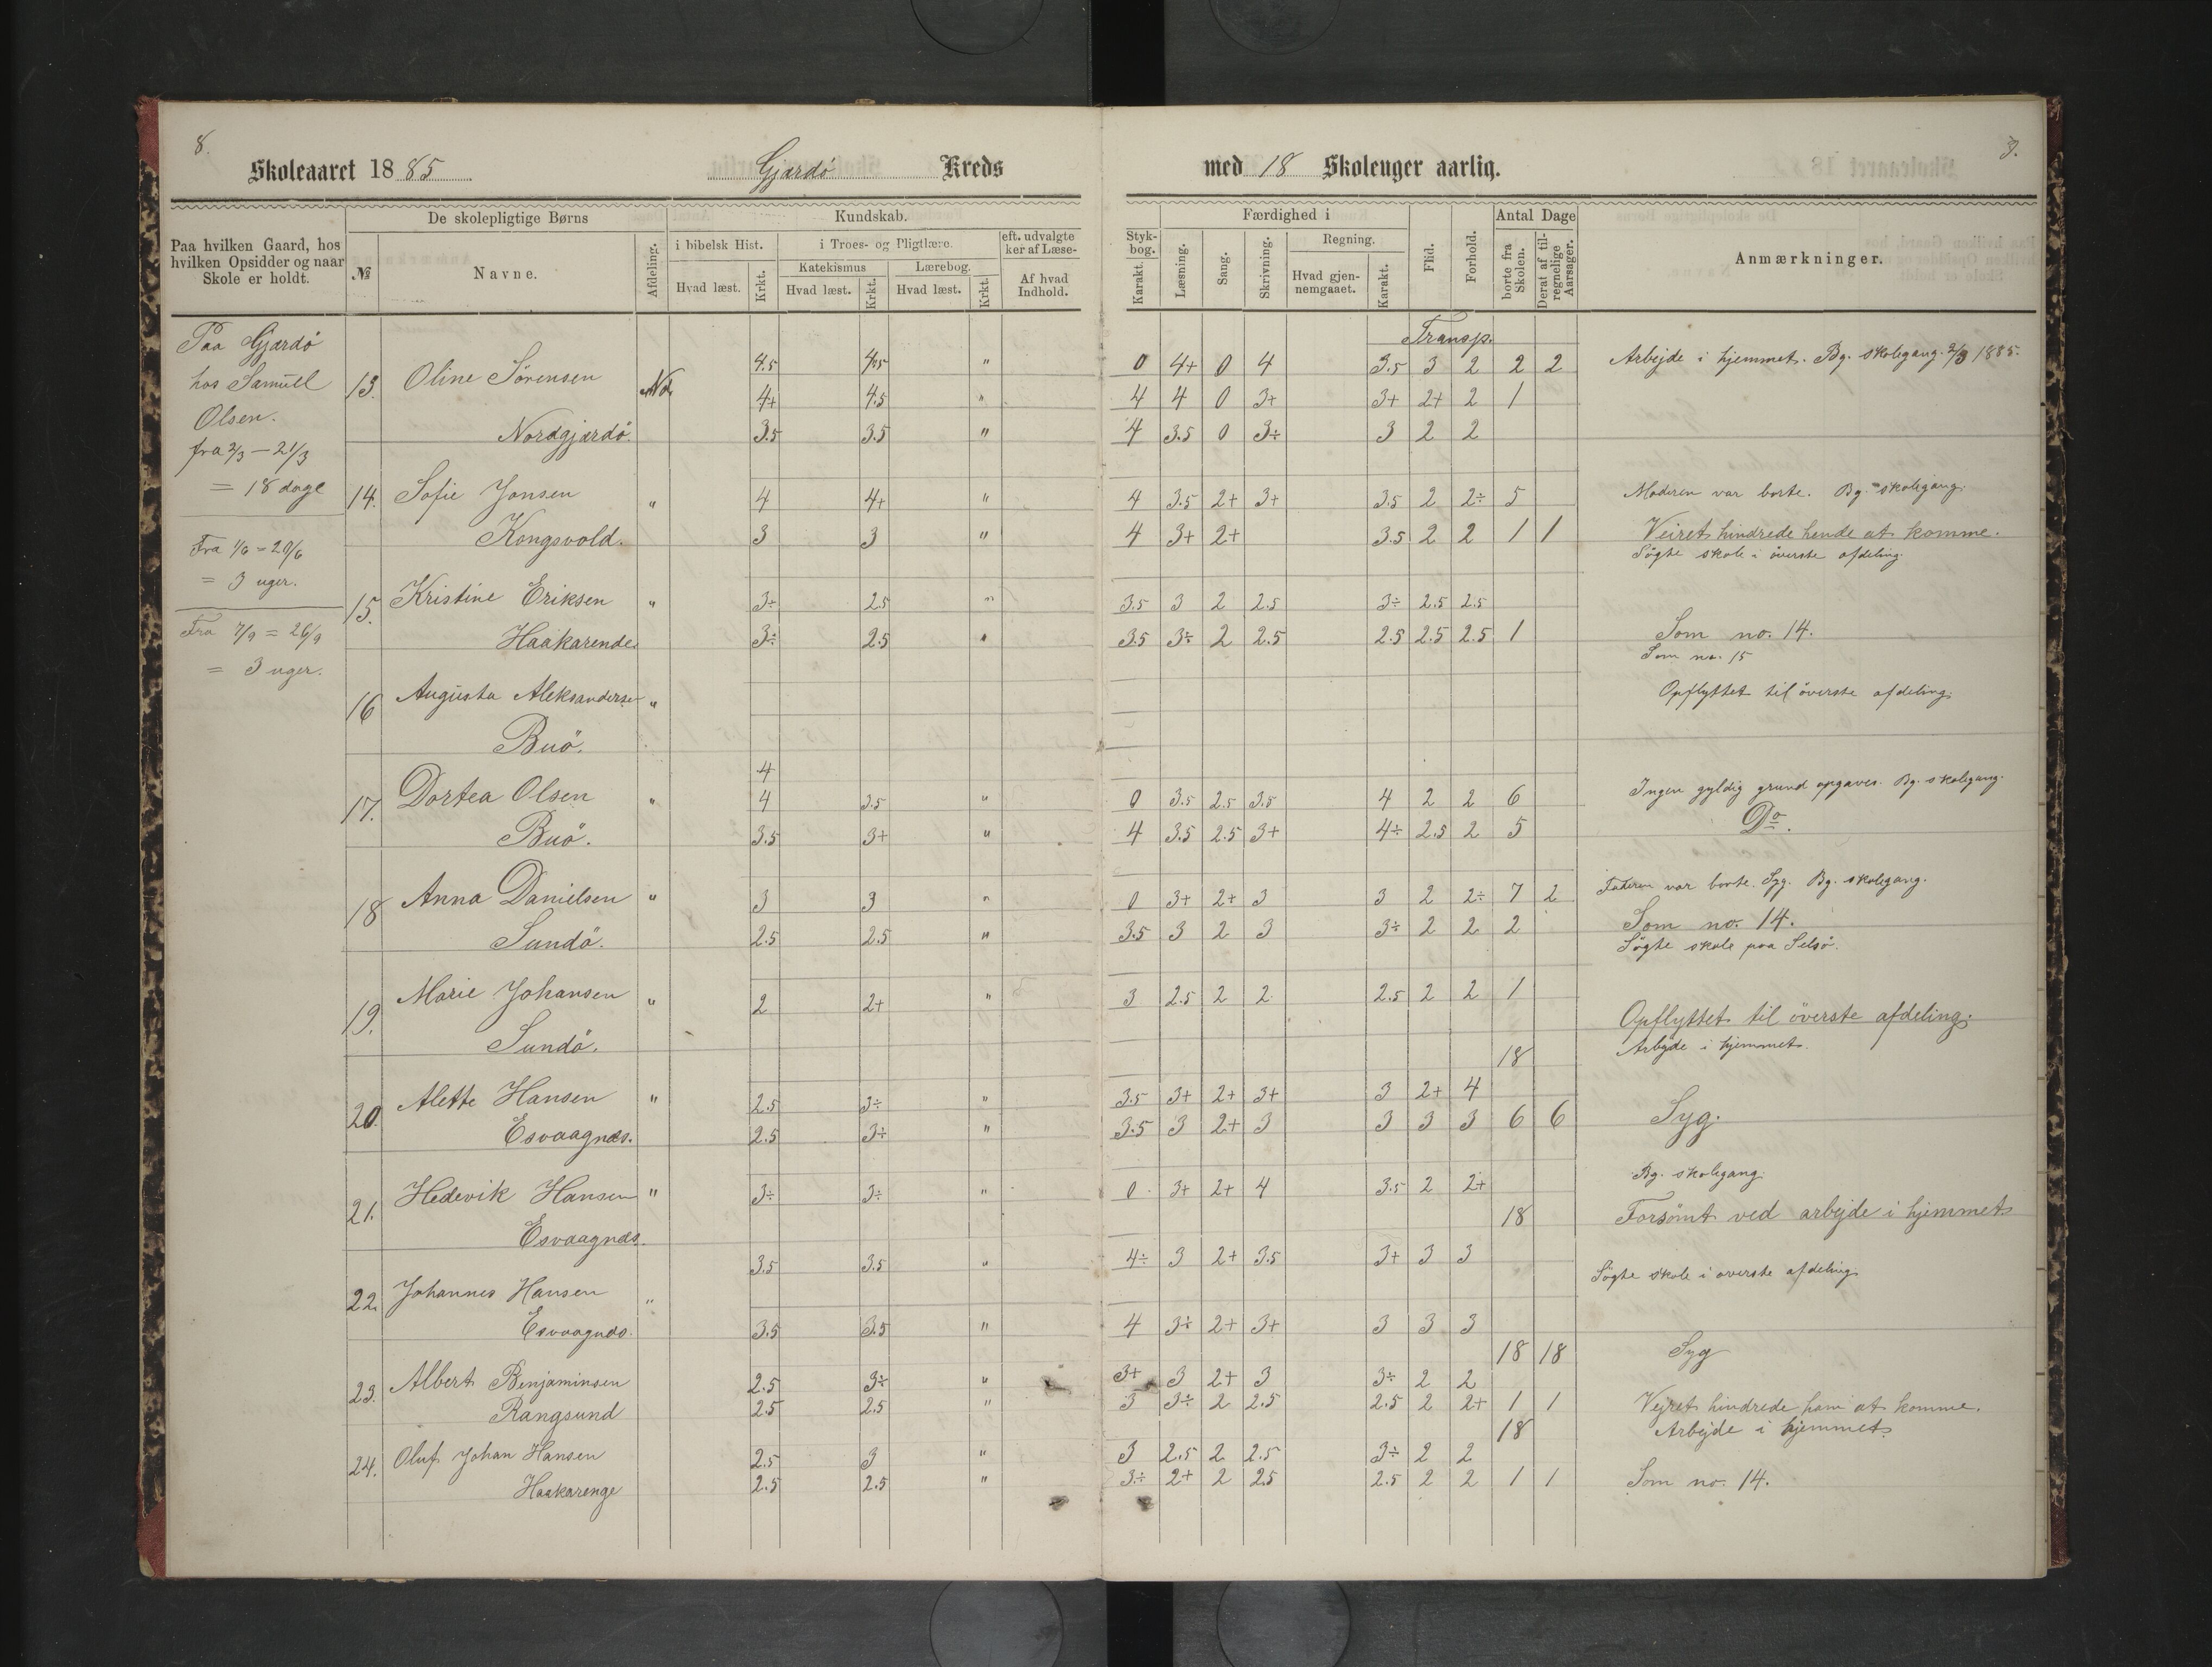 8.
Skoleaaret 1885
Gjærdö Kreds
Paa hvilken Gaard, hos hvilken Opsidder og naar Skole er holdt.
De skolepligtige Børns
№
Navne.
Afdeling.
Kundskab.
i bibelsk Hist.
Hvad læst.
Krkt.
i Troes- og Pligtlære.
Katekismus
Hvad læst.
Krkt.
Lærebog.
Hvad læst.
Krkt.
eft. udvalgte
ker af Læse-
Af hvad Indhold.
Paa Gjærdö
hos Samuel
Olsen.
fra 2/3 — 21/3
= 18 dage
Fra 1/6 = 20/6
= 3 uger.
Fra 7/9 = 26/9
= 3 uger.
13. Oline Sörensen 4.5 4.5 "
4+ 4.5 "
Nordgjærdö. 3.5 3.5 "
14. Sofie Jonsen " 4 4+ "
Kongsvold. 3 3 "
15. Kristine Eriksen " 3÷ 2.5 "
Haakarende. 3÷ 2.5 "
16 Augusta Aleksanderse "
Buö.
4
17. Dortea Olsen " 4 3.5 "
Buö. 3.5 3+ "
18 Anna Danielsen " 3 3 "
Sundö. 2.5 2.5 "
19. Marie Johansen " 2 2+ "
Sundö.
20. Alette Hansen " 2.5 3÷ "
Esvaagnæs. 2.5 3÷ "
21. Hedevik Hansen " 3÷ 3÷ "
Esvaagnæs.
3.5 3.5 "
22. Johannes Hansen "
Esvaagnæs. 3.5 3.5 "
23. Albert Benjaminsen 2.5 3÷ "
Rangsund 2.5 2.5 "
24. Oluf Johan Hansen 2.5 3 "
Haakarenge 2.5 2.5 "
9.
med 18 Skoleuger aarlig.
Styk-
bog.
Karakt.
Færdighed i
Læsning.
Sang.
Skrivning.
Regning.
Hvad gjen-
nemgaaet.
Karakt.
Flid.
Forhold.
Antal Dage
borte fra Skolen.
Deraf af til-
regnelige Aarsager.
Anmærkninger.
Transp.
0 4+ 0 4 3.5 3 2 2 2 Arbejde i hjemmet. Bg. skolegang. 2/3 1885.
4 4 0 3+ 3+ 2+ 2 1
4 3.5 0 3÷ 3 2 2
4 3.5 2+ 3+ 3.5 2 2÷ 5 Moderen var borte. Bg. skolegang.
4 3+ 2+ 3.5 2 2 1 1 Veiret hindrede hende at komme.
Sögte skole i överste afdeling.
3.5 3 2 2.5 3÷ 2.5 2.5
3.5 3÷ 2 2.5 2.5 2.5 2.5 1 Som no. 14.
Som no. 15
Opflyttet til överste afdeling.
0 3.5 2.5 3.5 4 2 2 6 Ingen gyldig grund opgaves. Bg. skolegang.
4 3.5 2.5 3+ 4÷ 2.5 2 5 Do.
0 3+ 2+ 3 3 2 2÷ 7 2 Faderen var borte. Syg. Bg. skolegang.
3.5 3 2 3 3÷ 2 2 2 Som no. 14.
Sögte skole paa Selsö.
3 2.5 2 2 2.5 2 2 1
Opflyttet til överste afdeling.
18 Arbejde i hjemmet.
3.5 3+ 2+ 3+ 3 2+ 4
3.5 3 2+ 3 3 3 3 6 6 Syg.
Bg. skolegang.
0 3+ 2+ 4 3.5 2 2+
18 Forsömt ved arbejde i hjemmet
4÷ 3 2+ 3.5 3+ 3 3
Sögte skole i överste afdeling.
4 3÷ 2+ 3+ 3 3 3
18 18 Syg
3+ 3 2+ 3 3÷ 2 2
3 3÷ 2 2.5 2.5 2 2+ 1 1 Vejret hindrede ham at komme.
18 Arbejde i hjemmet.
3 2.5 2 2.5 3÷ 2 2
3÷ 2+ 2 2.5 2.5 2 2 1 1 Som no. 14.